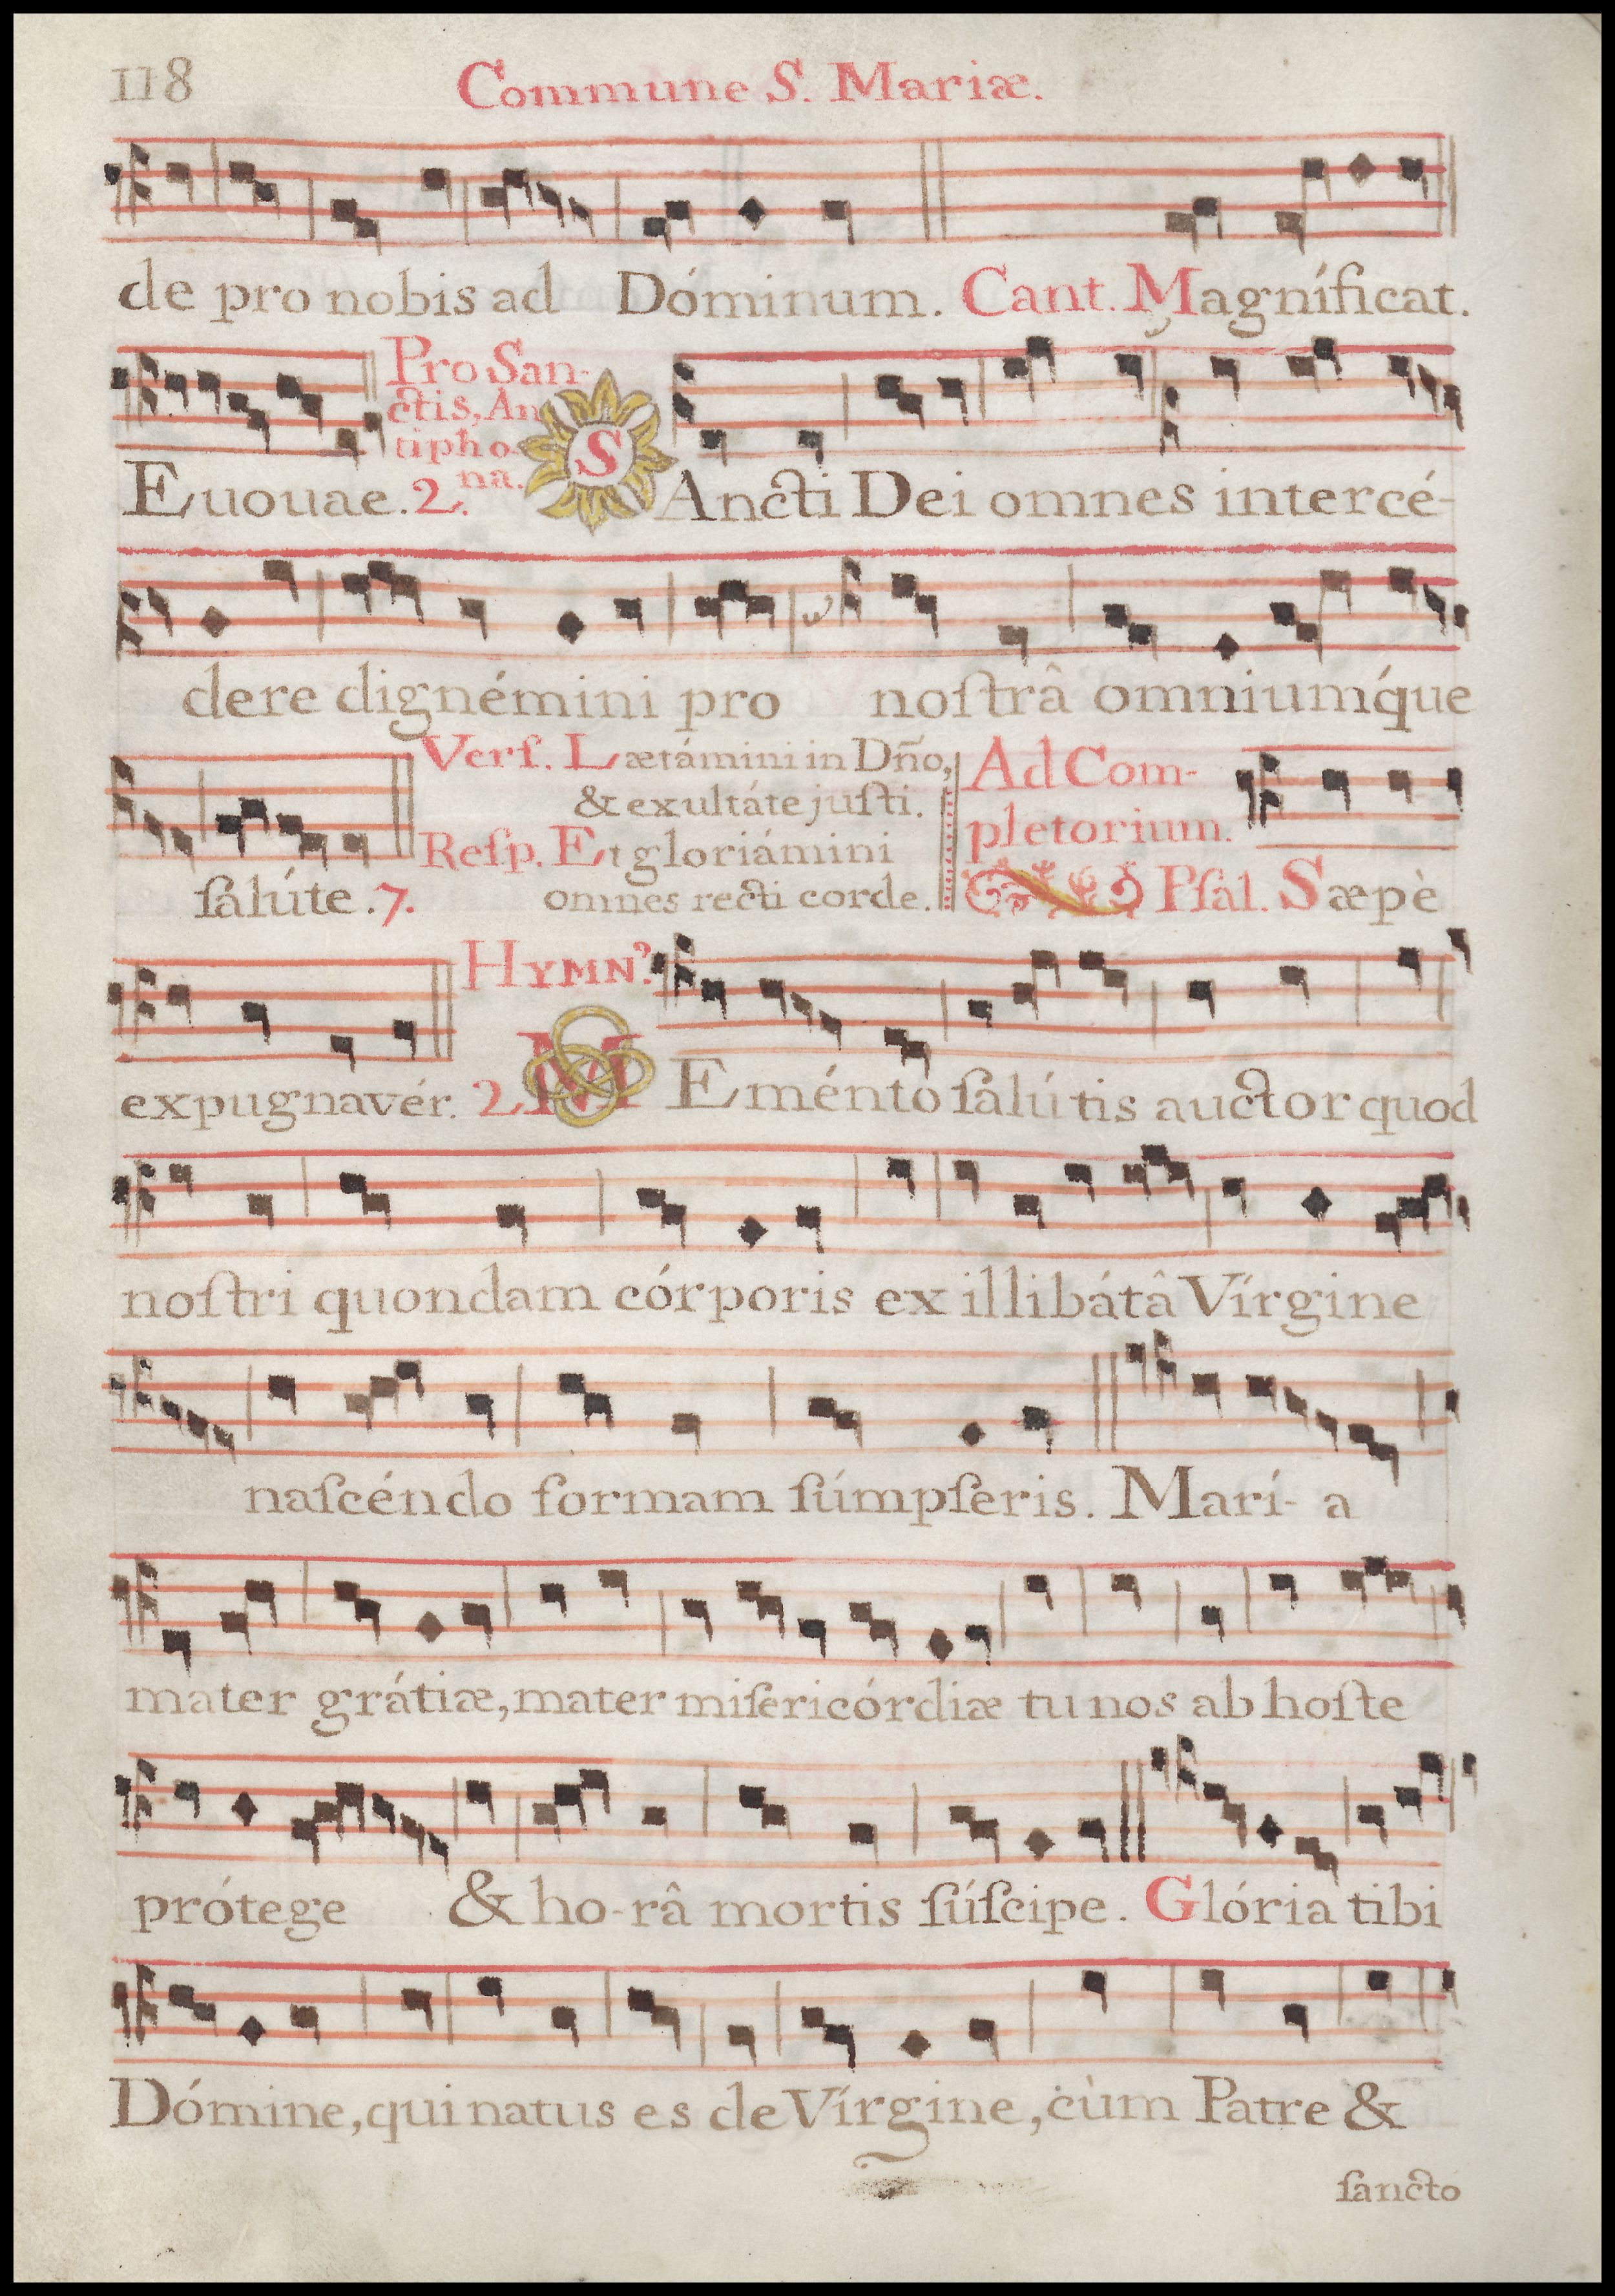 118 Commune S. Mariæ.
de pro nobis ad Dóminum. Cant. Magníficat.
Pro San-
ctis, An
tipho
na.
Euouae. 2. SAncti Dei omnes intercé-
dere dignémini pro noſtrâ omniumq́ue
Verſ. Lætámini in Dño,
& exultáte juſti.
Reſp. Et gloriámini
omnes recti corde.
Ad Com-
pletorium.
ſalúte. 7. Pſal. Sæpè
HYMN⁹.
expugnavér. 2. MEménto ſalútis auctor quod
noſtri quondam córporis ex illibátâ Vírgine
naſcéndo formam ſúmpſeris. Marí- a
mater grátiæ, mater miſericórdiæ tu nos ab hoſte
prótege & ho-râ mortis ſúſcipe. Glória tibi
Dómine, qui natus es de Vírgine, cùm Patre &
ſancto